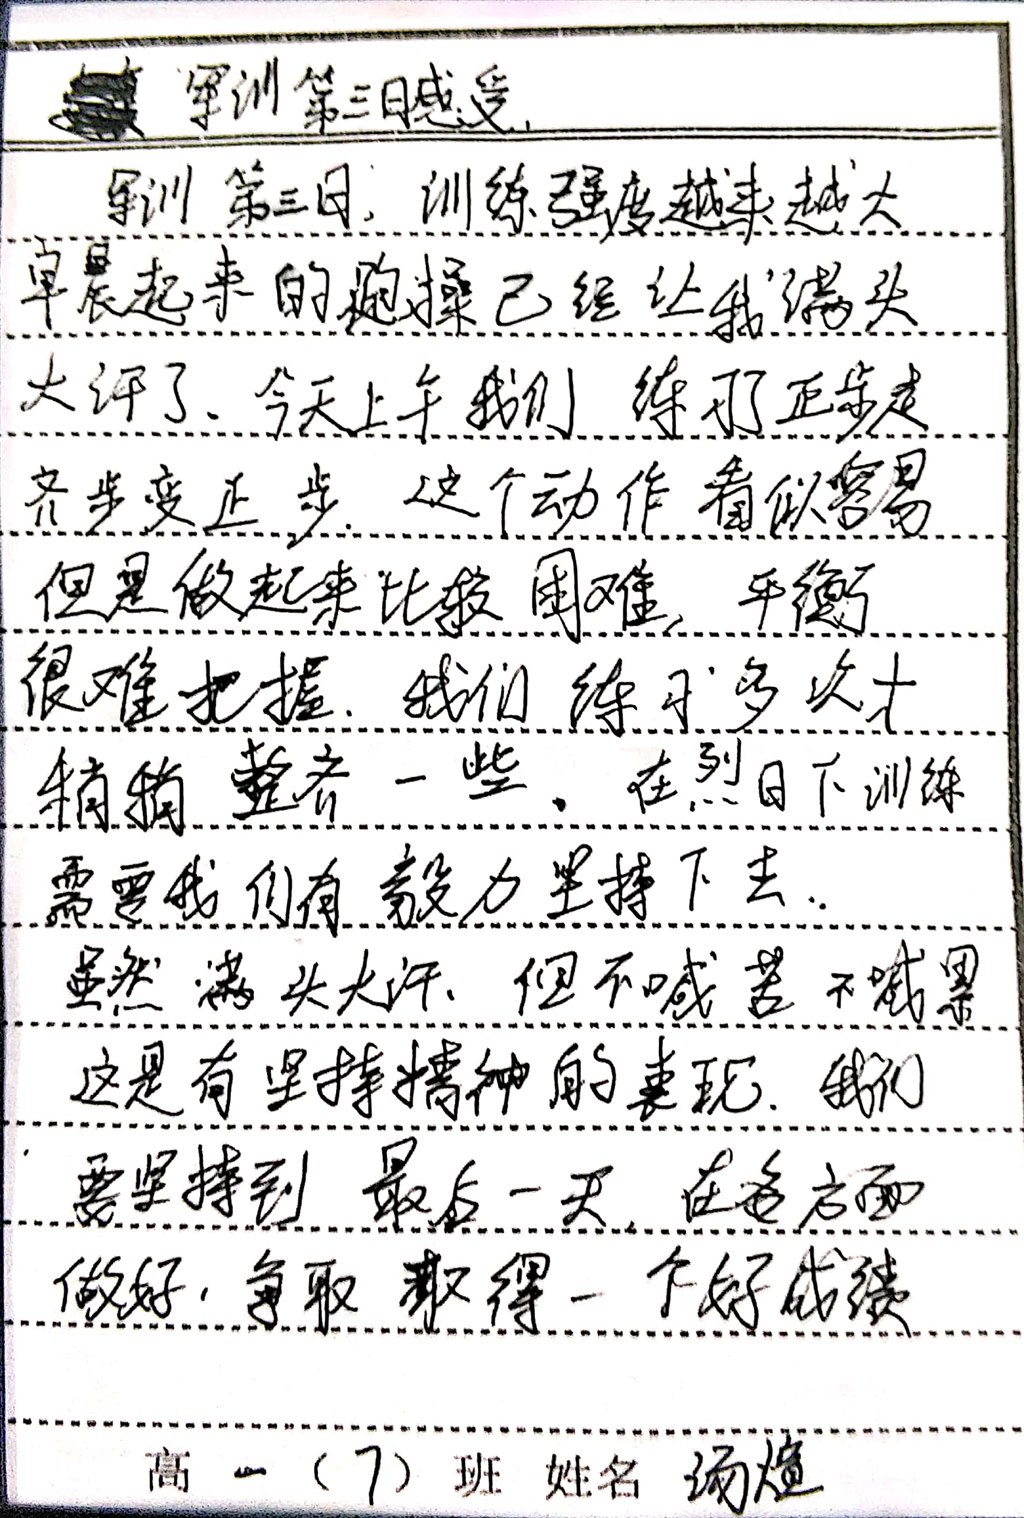 军训第三日感受.
军训第三日，训练强度越来越大
早晨起来的跑操已经让我满头
大汗了、今天上午我们练习了正步走
齐步变正步.这个动作看似容易
但是做起来比较困难，平衡
很难把握.我们练习多次才
稍稍整齐一些.在烈日下训练
需要我们有毅力坚持下去..
虽然满头大汗、但不喊苦不喊累
这是有坚持精神的表现.我们
要坚持到最后一天，在各方面
做好.争取取得一个好成绩
高一（7）班 姓名 汤煊